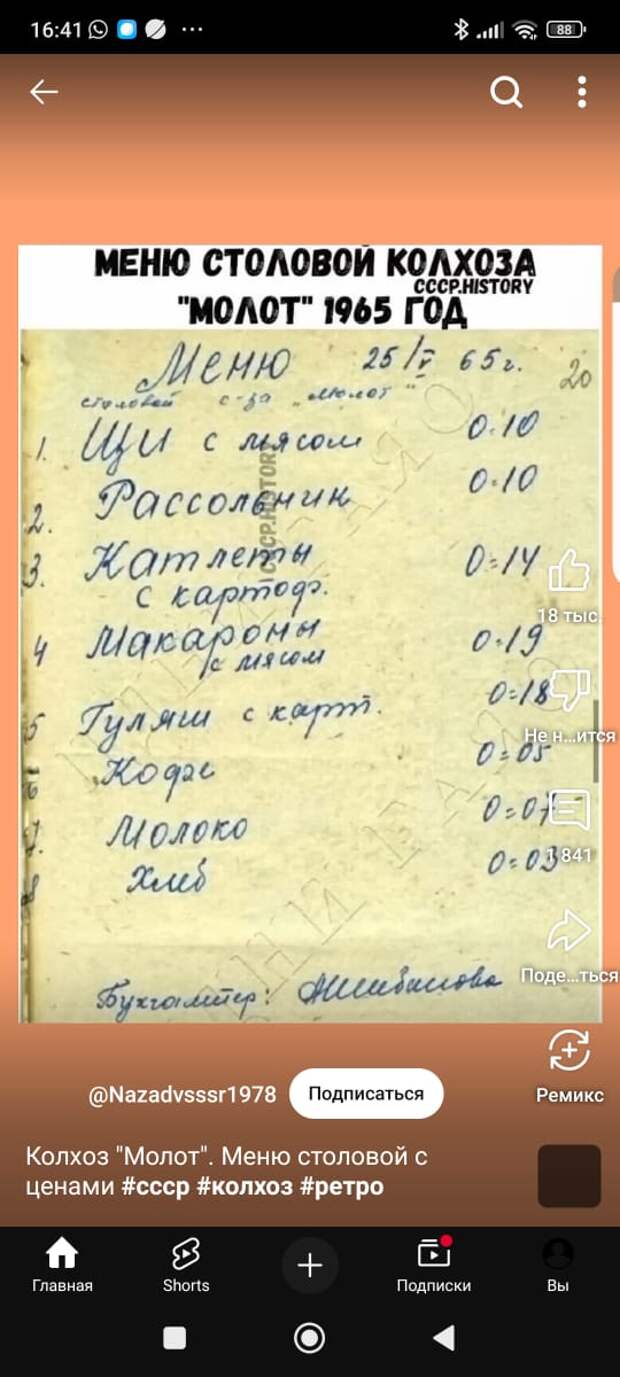 16:41
88
МЕНЮ СТОЛОВОЙ КОЛХОЗА
СССР.HISTORY
"МОЛОТ" 1965 ГОД
Меню 25/V 65 г. 20
столовой с-за „Молот"
1. Щи с мясом 0-10
2. Рассольник 0-10
3. Катлеты 0=14
с картоф.
4 Макароны 0-19
с мясом
5 Гуляш с карт. 0=18
6 Кофе 0=05
7. Молоко 0=07
8 Хлеб 0=03
Бухгалтер:
СССР.HISTORY
18 тыс.
Не н...ится
1 841
Поде...ться
Ремикс
@Nazadvsssr1978 Подписаться
Колхоз "Молот". Меню столовой с
ценами #ссср #колхоз #ретро
Главная Shorts Подписки Вы